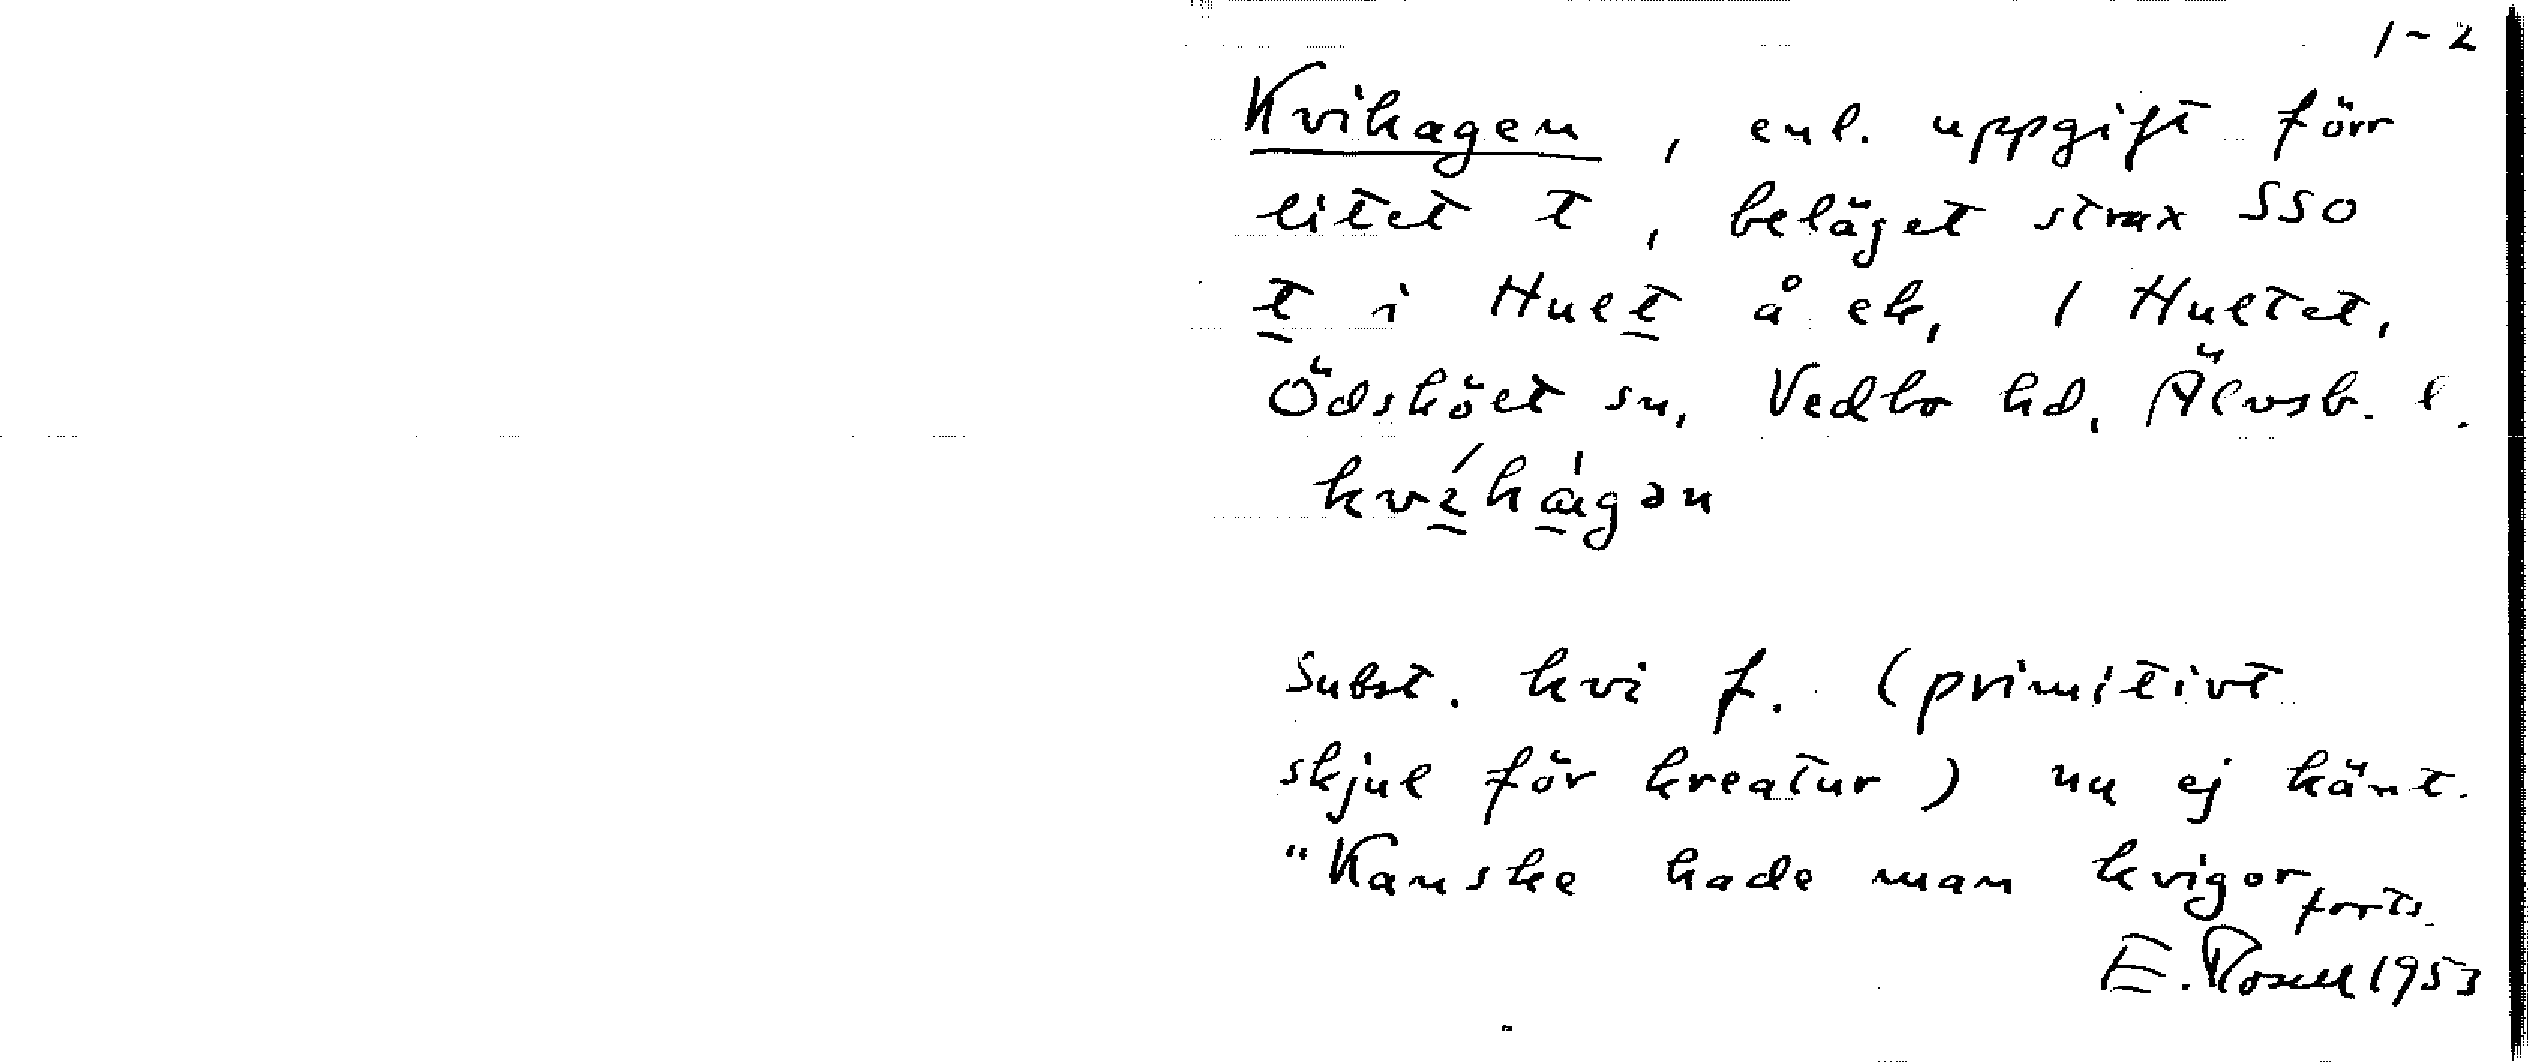 1-2
Kvihagen, enl. uppgift förr
litet t, beläget strax SSO
t i Hult å ek, 1 Hultet,
Ödsköet sn, Vedbo hd, Älvsb. l.
kvéhágən
Subst. kvi f. (primitivt
skjul för kreatur) nu ej känt.
"Kanske hade man kvigor forts.
E. Rosell 1953